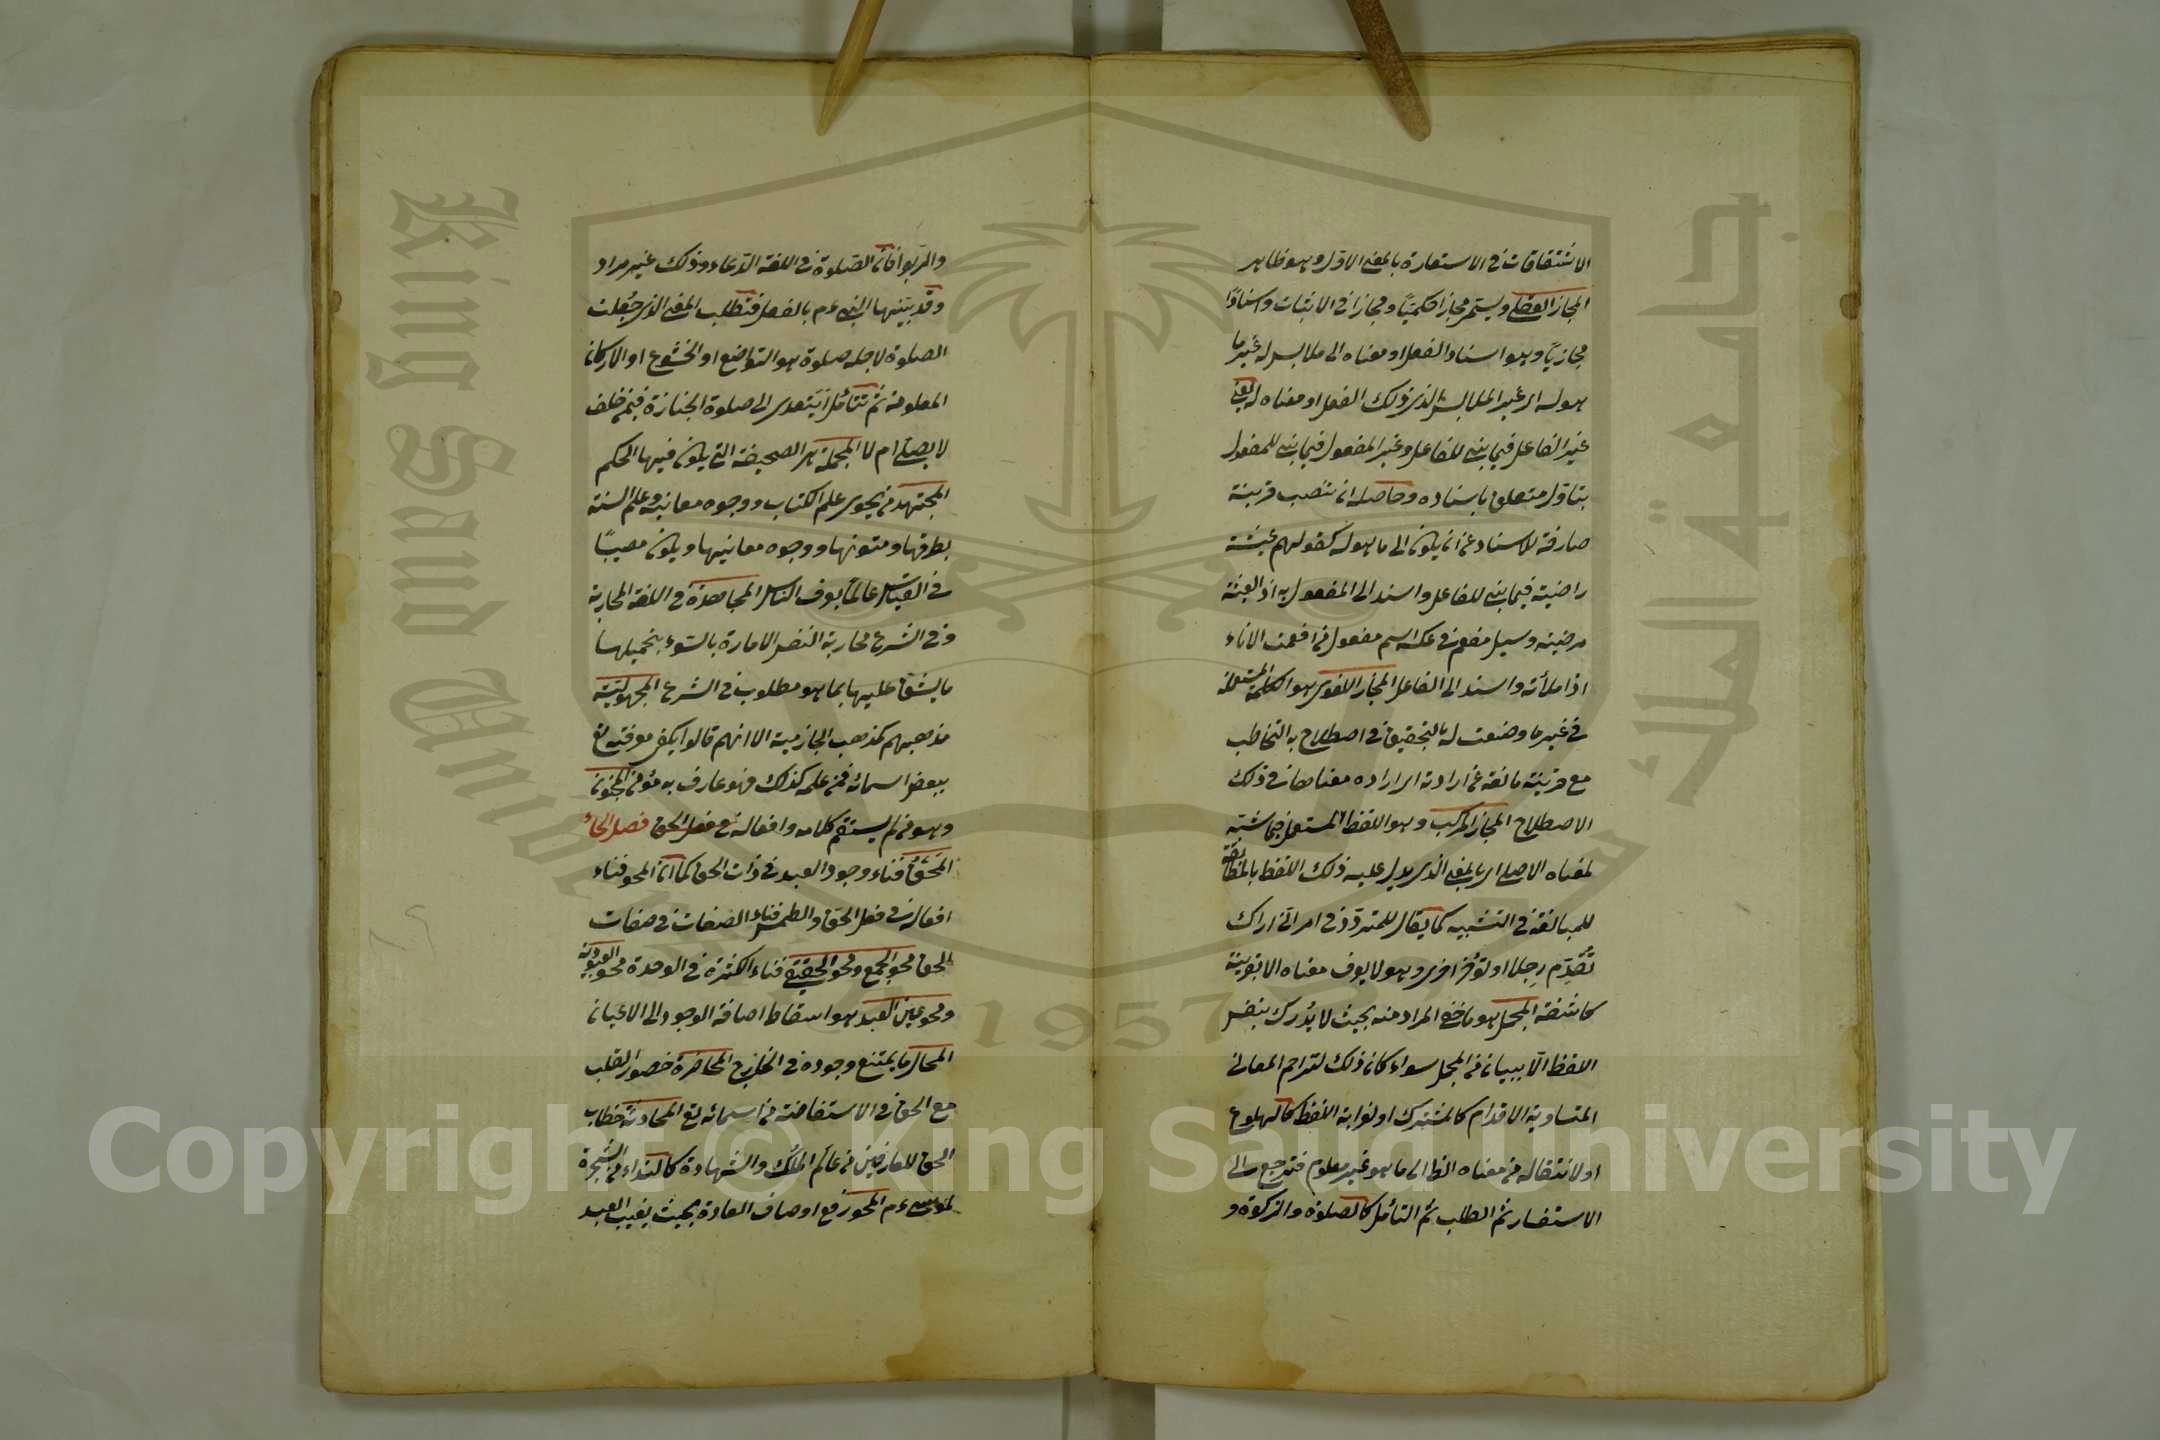 الاشتقاقات في الاستعارة بالمعنى الاول وهو ظاهر
المجاز العقلي ويسمى مجازا حكميا ومجازا في الاثبات واسنادا
مجازيا وهو اسناد الفعل او معناه الى ملابس له غير ما
هو له اى غير الملابس الذى ذلك الفعل او معناه له يعنى
غير الفاعل فيما بنى للفاعل وغير المفعول فيما بنى للمفعول
بتاول متعلق باسناده وحاصله ان تنصب قرينة
صارفة للاسناد عن ان يكون الى ما هو له كقولهم عيشة
راضية فيما بنى للفاعل واسند الى المفعول به اذ العيشة
مرضية وسيل مفعم في عكسه اسم مفعول من افعمت الاناء
اذا ملأته واسند الى الفاعل المجاز اللغوى هو الكلمة المستعملة
في غير ما وضعت له بالتحقيق في اصطلاح به التخاطب
مع قرينة مانعة عن ارادته اى ارادة معناها في ذلك
الاصطلاح المجاز المركب وهو اللفظ المستعمل فيما شبه
لمعناه الاصلى اى بالمعنى الذى يدل عليه ذلك اللفظ بالمطابقة
للمبالغة في التشبيه كما يقال للمتردد في امر انى اراك
تقدم رجلا وتؤخر اخرى وهو لا يعرف معناه الا بقرينة
كاشفة المجمل هو ما خفى المراد منه بحيث لا يدرك بنفس
اللفظ الا ببيان من المجمل سواء كان ذلك لتزاحم المعانى
المتساوية الاقدام كالمشترك او لغرابة اللفظ كالهلوع
او لانتقاله من معناه الظ الى ما هو غير معلوم فترجع الى
الاستفسار ثم الطلب ثم التأمل كالصلوة والزكوة و
والربوا فان الصلوة في اللغة الدعاء وذلك غير مراد
وقد بينها النبى ءم بالفعل فتطلب المعنى الذى جعلت
الصلوة لاجله صلوة هو التواضع او الخشوع او الاركان
المعلومة ثم تتأمل ايتعدى الى صلوة الجنازة فيمن حلف
لا يصلى ام لا المجلة هى الصحيفة التى يكون فيها الحكم
المجتهد من يحوى علم الكتاب ووجوه معانيه وعلم السنة
بطرقها ومتونها ووجوه معانيها ويكون مصيبا
في القياس عالما بعرف الناس المجاهدة في اللغة المحاربة
وفي الشرع محاربة النفس الامارة بالسوء بتحميلها
ما يشق عليها بما هو مطلوب في الشرع المجهولية
مذهبهم كمذهب الجازمية الا انهم قالوا يكفى معرفته تع
ببعض اسمائه فمن علمه كذلك فهو عارف به مؤمن المجنون
وهو من لم يستقم كلامه وافعاله فصل الحاء
المحق فناء وجود العبد في ذات الحق كما ان المحو فناء
افعاله في فعل الحق والطمس فناء الصفات في صفات
الحق محو الجمع ومحو الحقيقى فناء الكثرة في الوحدة محو العبودية
ومحو عين العبد هو اسقاط اضافة الوجود الى الاعيان
المحال ما يمتنع وجوده في الخارج المحاضرة حضور القلب
مع الحق في الاستفاضة من اسمائه تع المحادثة خطاب
الحق للعارفين من عالم الملك والشهادة كالنداء من الشجرة
لموسى ءم المحو رفع اوصاف العادة بحيث يغيب العبد
King Saud Univer
جامعة الملك
1957
Copyright © King Saud University